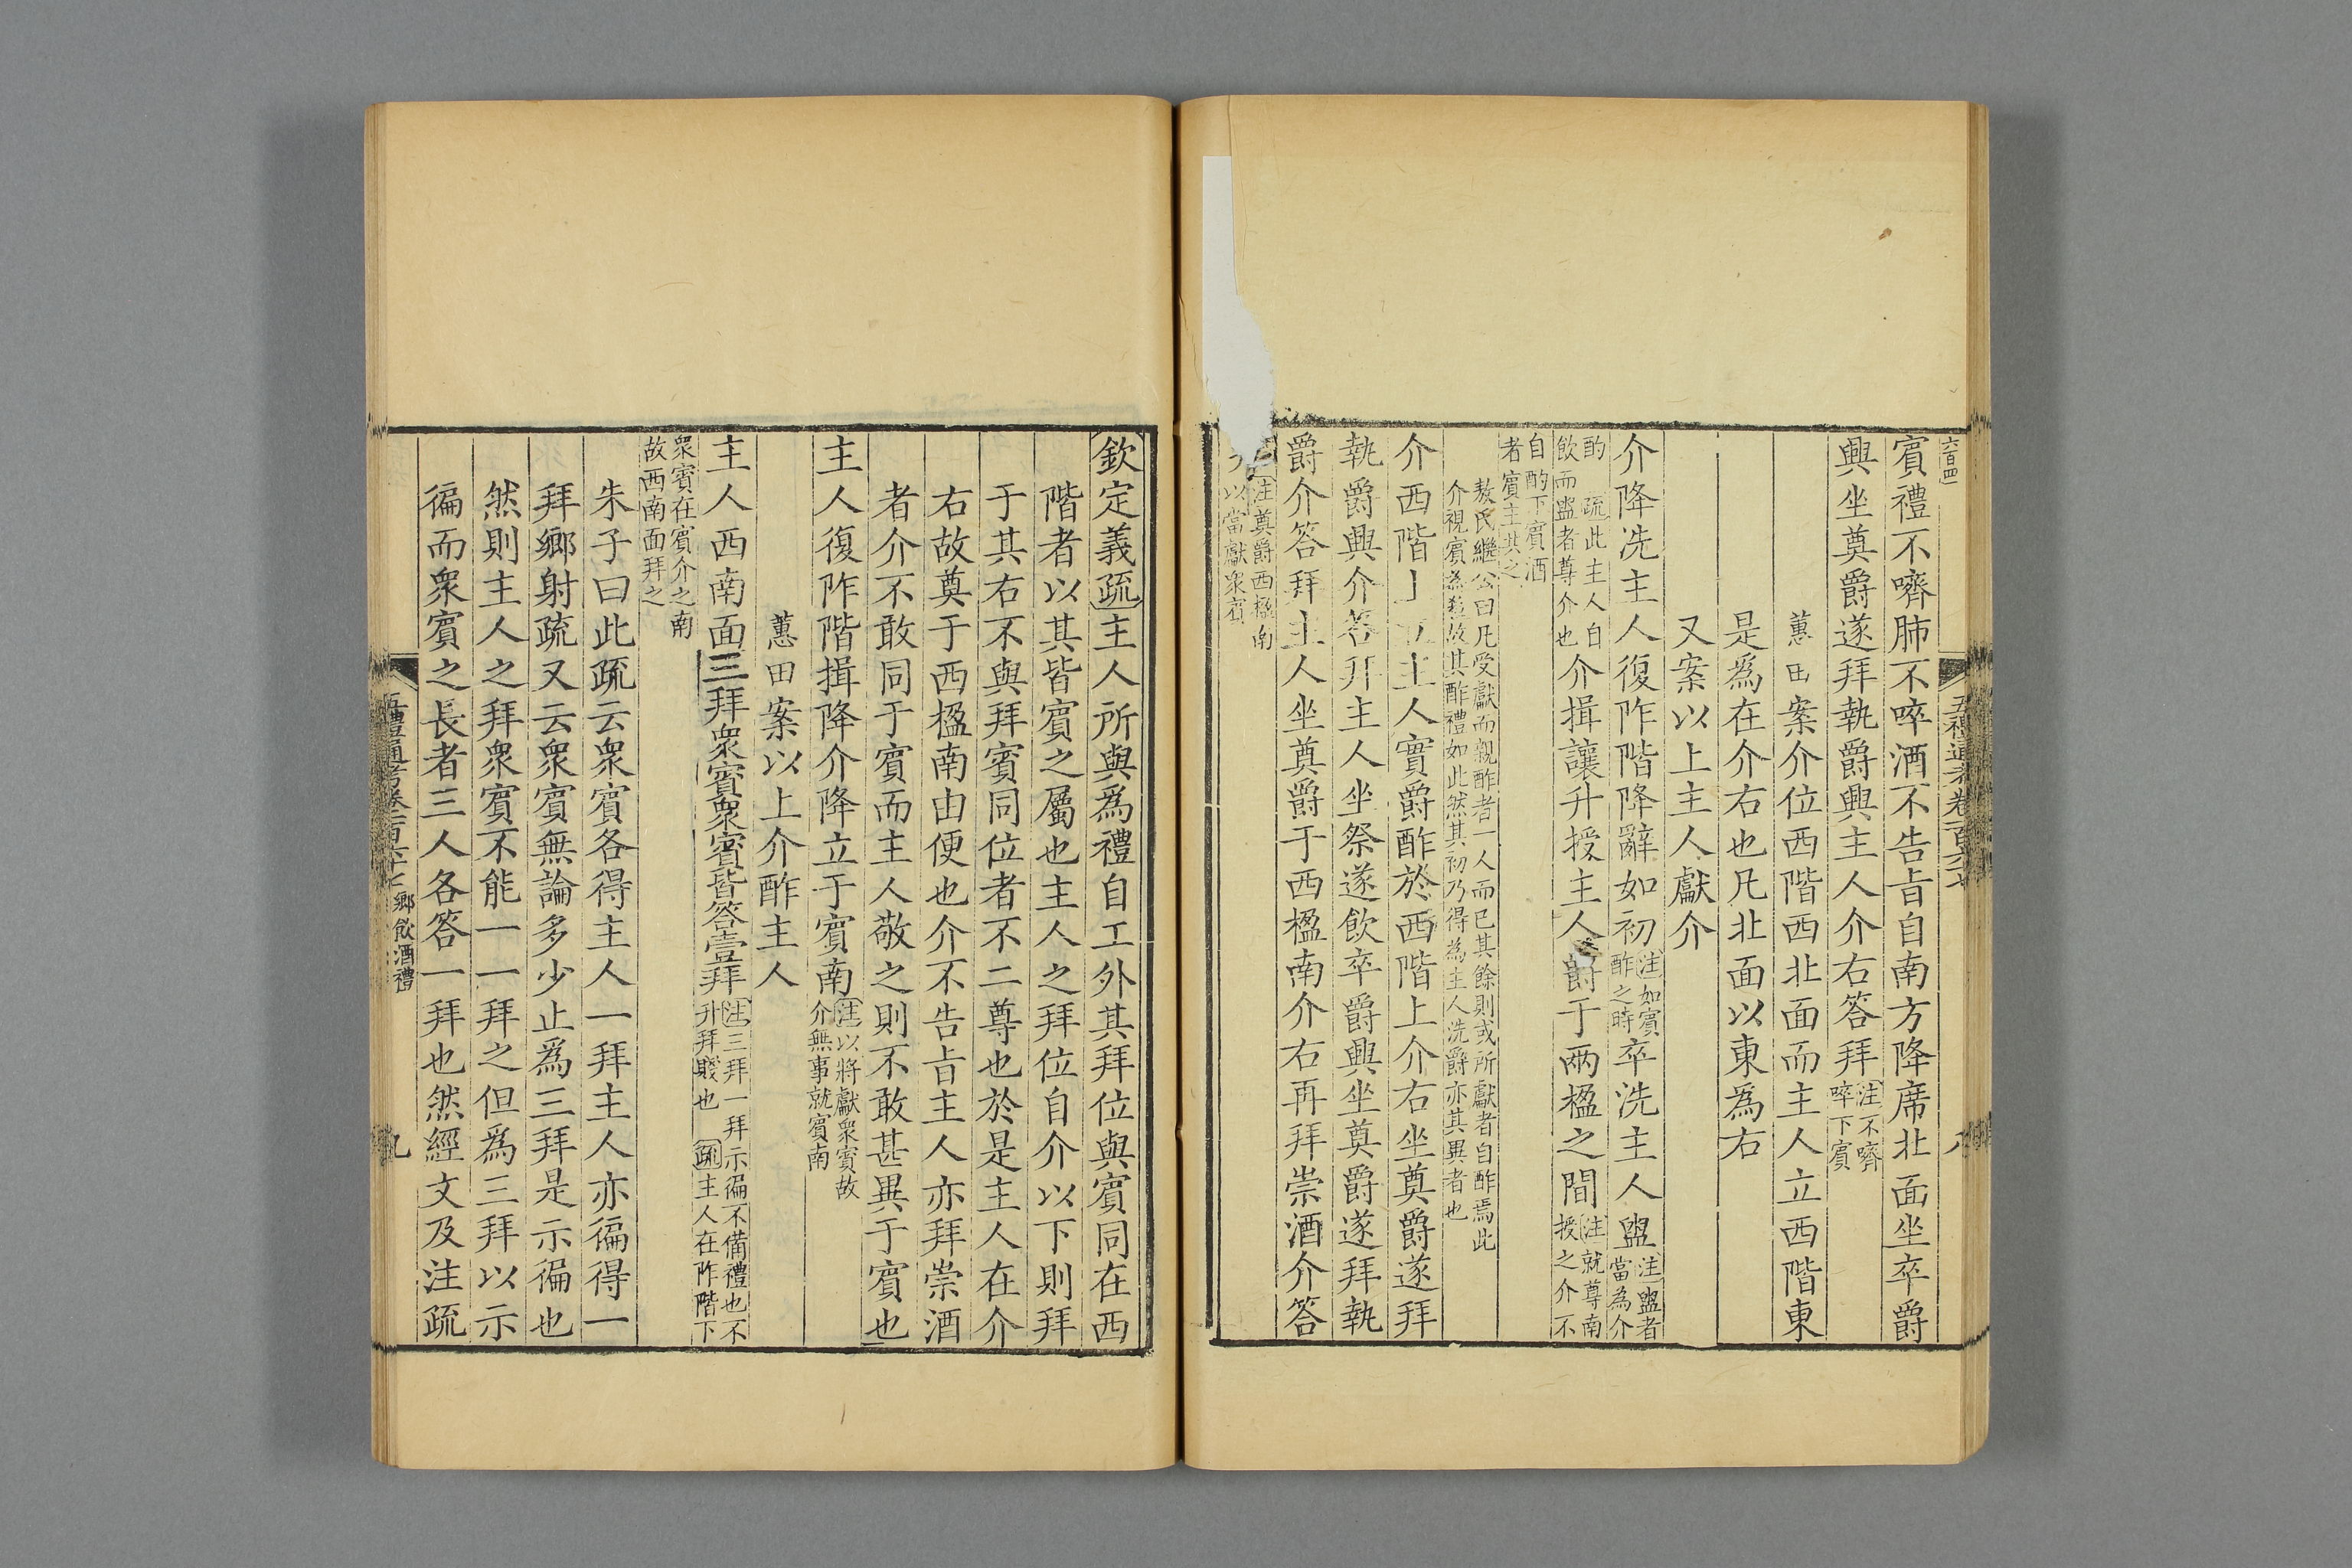 六百四
五禮通考卷一百六十七
八
賓禮不嚌肺不啐酒不告旨自南方降席北面坐卒爵
興坐奠爵遂拜執爵興主人介右答拜注不嚌
啐下賓
蕙田案介位西階西北面而主人立西階東
是爲在介右也凡北面以東爲右
又案以上主人獻介
介降洗主人復阼階降辭如初注如賓
酢之時卒洗主人盥注盥者
當為介
酌 疏此主人自
飲而盥者尊介也介揖讓升授主人爵于兩楹之間注就尊南
授之介不
自酌下賓酒
者賓主共之
敖氏繼公曰凡受獻而親酢者一人而已其餘則或所獻者自酢焉此
介視賓為殺故其酢禮如此然其初乃得為主人洗爵亦其異者也
介西階上立主人實爵酢於西階上介右坐奠爵遂拜
執爵興介荅拜主人坐祭遂飲卒爵興坐奠爵遂拜執
爵介答拜主人坐奠爵于西楹南介右再拜崇酒介答
注奠爵西楹南
以當獻衆賓
欽定義疏主人所與爲禮自工外其拜位與賓同在西
階者以其皆賓之屬也主人之拜位自介以下則拜
于其右不與拜賓同位者不二尊也於是主人在介
右故奠于西楹南由便也介不告旨主人亦拜崇酒
者介不敢同于賓而主人敬之則不敢甚異于賓也
主人復阼階揖降介降立于賓南注以將獻衆賓故
介無事就賓南
蕙田案以上介酢主人
主人西南面三拜衆賓衆賓皆答壹拜注三拜一拜示徧不備禮也不
升拜賤也 疏主人在阼階下
衆賓在賓介之南
故西南面拜之
朱子曰此疏云衆賓各得主人一拜主人亦徧得一
拜鄉射疏又云衆賓無論多少止爲三拜是示徧也
然則主人之拜衆賓不能一一拜之但爲三拜以示
徧而衆賓之長者三人各答一拜也然經文及注疏
五禮通考卷一百六十七 鄉飲酒禮
九